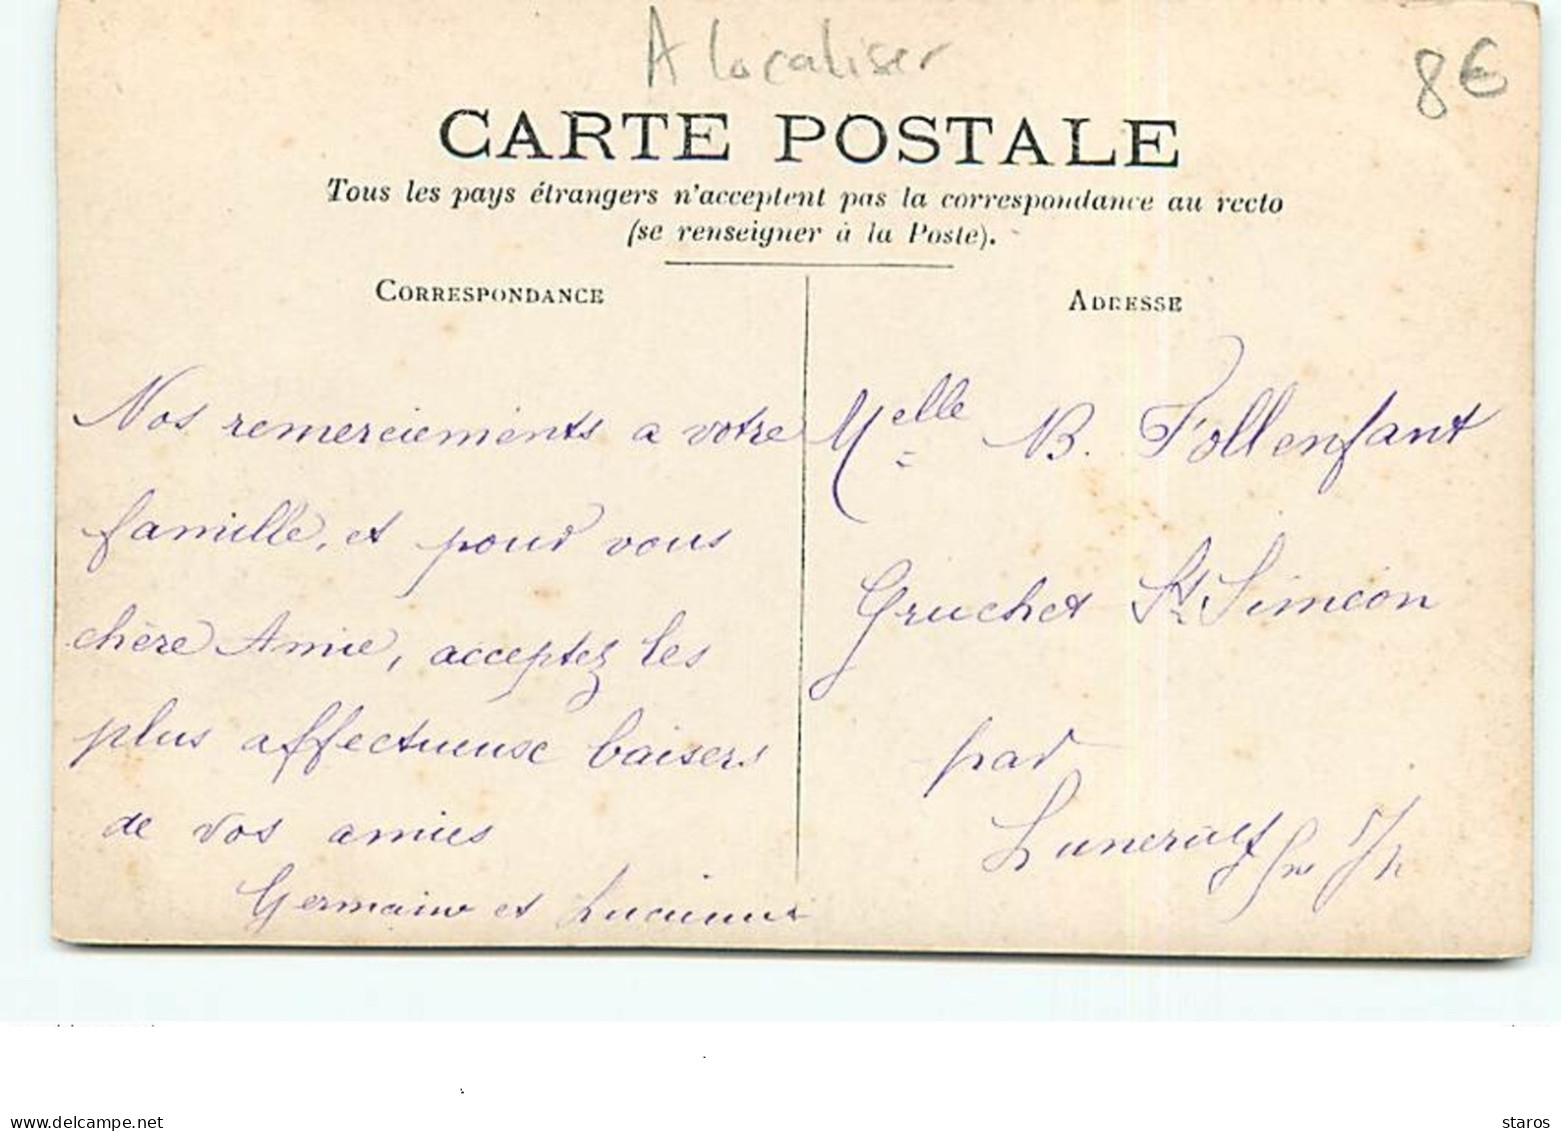 A localiser
8€
CARTE POSTALE
Tous les pays étrangers n'acceptent pas la correspondance au recto
(se renseigner à la Poste).
CORRESPONDANCE
ADRESSE
Nos remerciements a votre
famille, et pour vous
chère Amie, acceptez les
plus affectueuse baisers
de vos amies
Germaine et Lucienne
Melle B. Follenfant
Gruchet St Siméon
par
Luneray
www.delcampe.net
staros